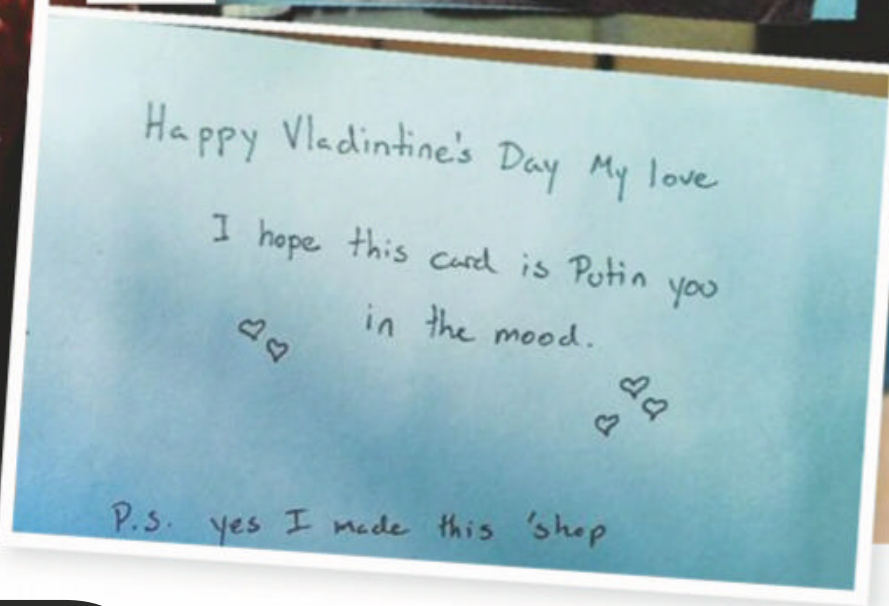 Happy Vladintine's Day My love
I hope this card is Putin you
in the mood.
P.S. yes I made this 'shop